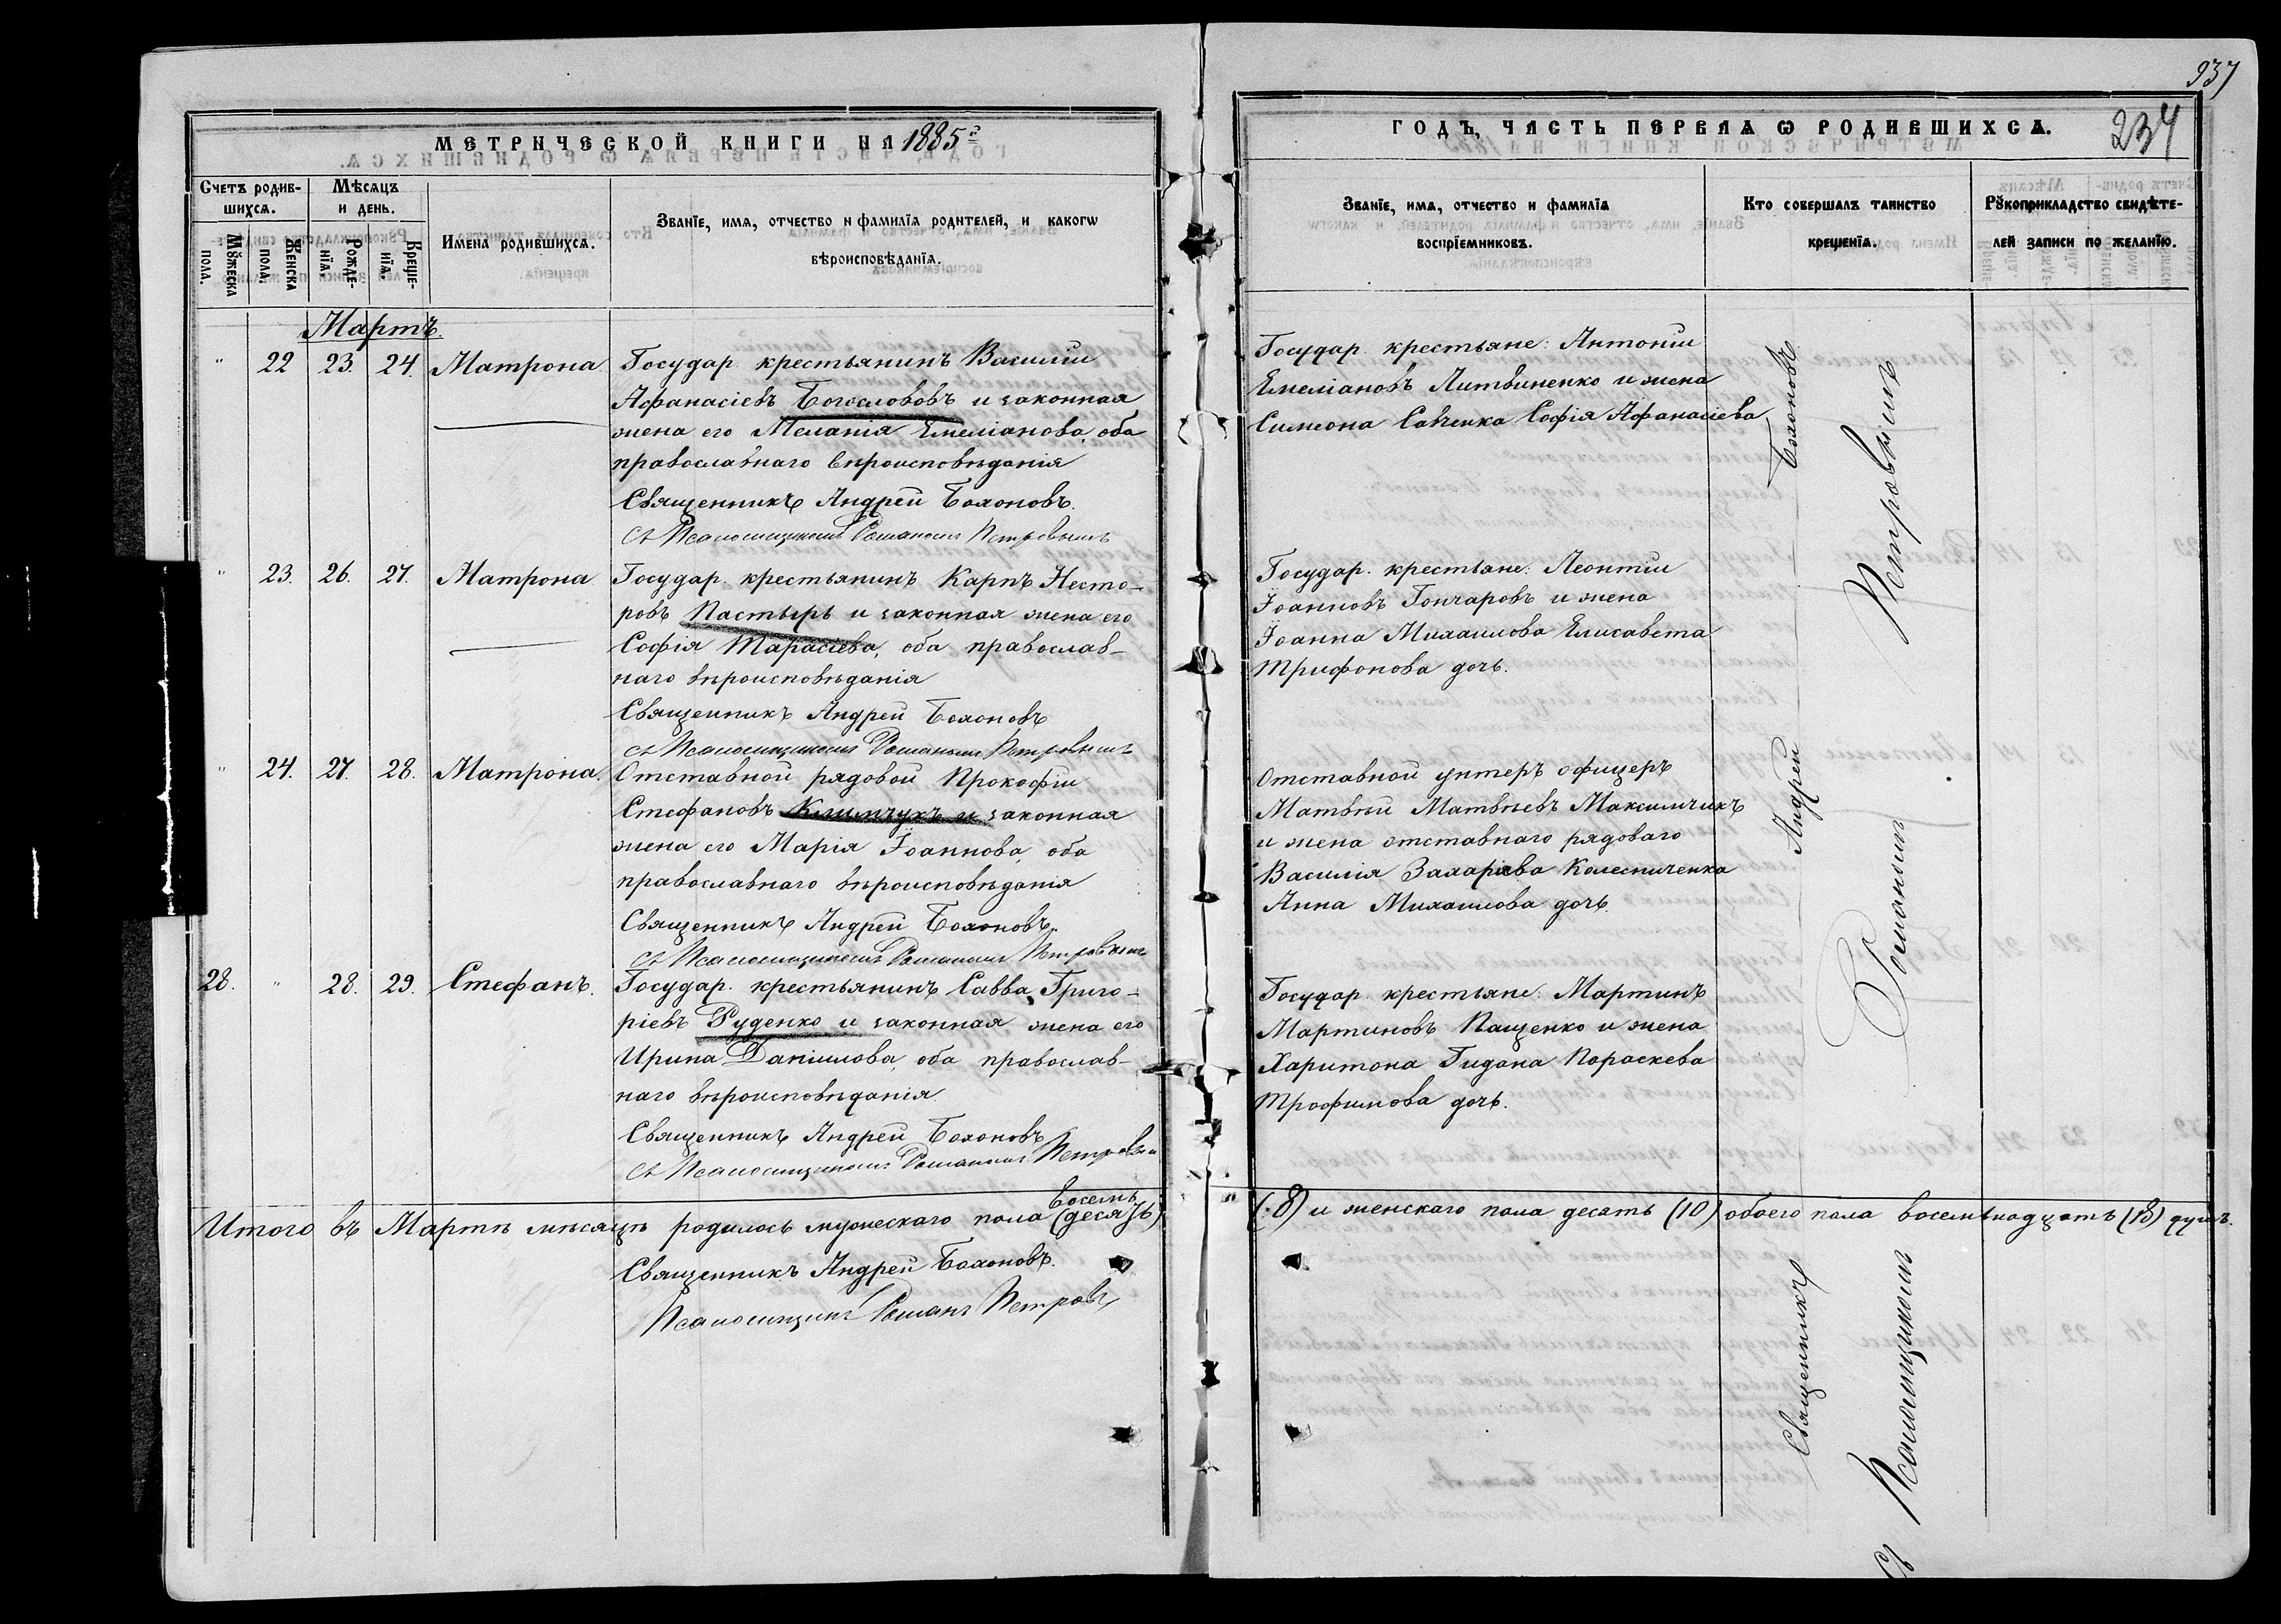 937
МЕТРИЧЕСКОЙ КНИГИ НА 1885 г.
Счетъ родившихсѧ.
Мѣсѧцъ и день.
Имена родившихсѧ.
Званїе, имѧ, отчество и фамилїѧ родителей, и какогѡ вѣроисповѣданїѧ.
Мꙋжеска пола.
Женска пола.
Рожденїѧ.
Крещенїѧ.
Мартъ.
" 22 23. 24. Матрона.
Государ. крестьянинъ Василій
Афанасіевъ Богословъ и законная
жена его Меланія Емеліанова, оба
православнаго вѣроисповѣданія
Священникъ Андрей
съ Псаломщикомъ Романомъ Петровымъ
" 23. 26. 27. Матрона
Государ. крестьянинъ Карпъ Несто-
ровъ Пастырь и законная жена его
Софія Тарасіева, оба православ-
наго вѣроисповѣданія
Священникъ Андрей
съ Псаломщикомъ Романомъ Петровымъ
" 24. 27. 28. Матрона.
Отставной рядовой Прокофій
Стефановъ Климчукъ и законная
жена его Марія Іоаннова, оба
православнаго вѣроисповѣданія
Священникъ Андрей
съ Псаломщикомъ Романомъ Петровымъ
28. " 28. 29. Стефанъ.
Государ. крестьянинъ Савва Григо-
ріевъ Руденко и законная жена его
Ирина Даніилова, оба православ-
наго вѣроисповѣданія.
Священникъ Андрей
съ Псаломщикомъ Романомъ Петровым
восемь
Итого въ Мартѣ мѣсяцѣ родилось мужескаго пола (десять)
Священникъ Андрей
Псаломщикъ Романъ Петровъ
ГОДЪ, ЧАСТЬ ПЕРВАѦ Ѡ РОДИВШИХСѦ.
234
Званїе, имѧ, отчество и фамилїѧ воспрїемниковъ.
Кто совершалъ таинство крещенїѧ.
Рꙋкоприкладство свидѣтелей записи по желанїю.
Государ. крестьяне: Антоній
Емеліановъ Литвиненко и жена
Симеона Савченка Софія Афанасіева
Государ. крестьяне: Леонтій
Іоанновъ Гончаровъ и жена
Іоанна Михаилова Елисавета
Трифонова дочь.
Отставной унтеръ офицеръ
Матвѣй Матвѣевъ Максимчикъ
и жена отставнаго рядоваго
Василія Захаріева Колесниченка
Анна Михаилова дочь.
Государ. крестьяне: Мартинъ
Мартиновъ Пащенко и жена
Харитона Гидана Параскева
Трофимова дочь.
(8) и женскаго пола десять (10) обоего пола восемьнадцать (18) душъ.
Священникъ Андрей
съ Псаломщикомъ Романомъ Петровымъ